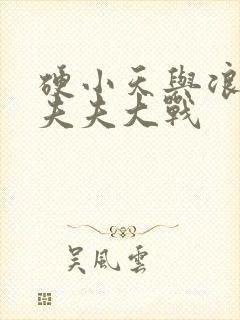 硬小天與浪
夫夫大戰
吴風雲